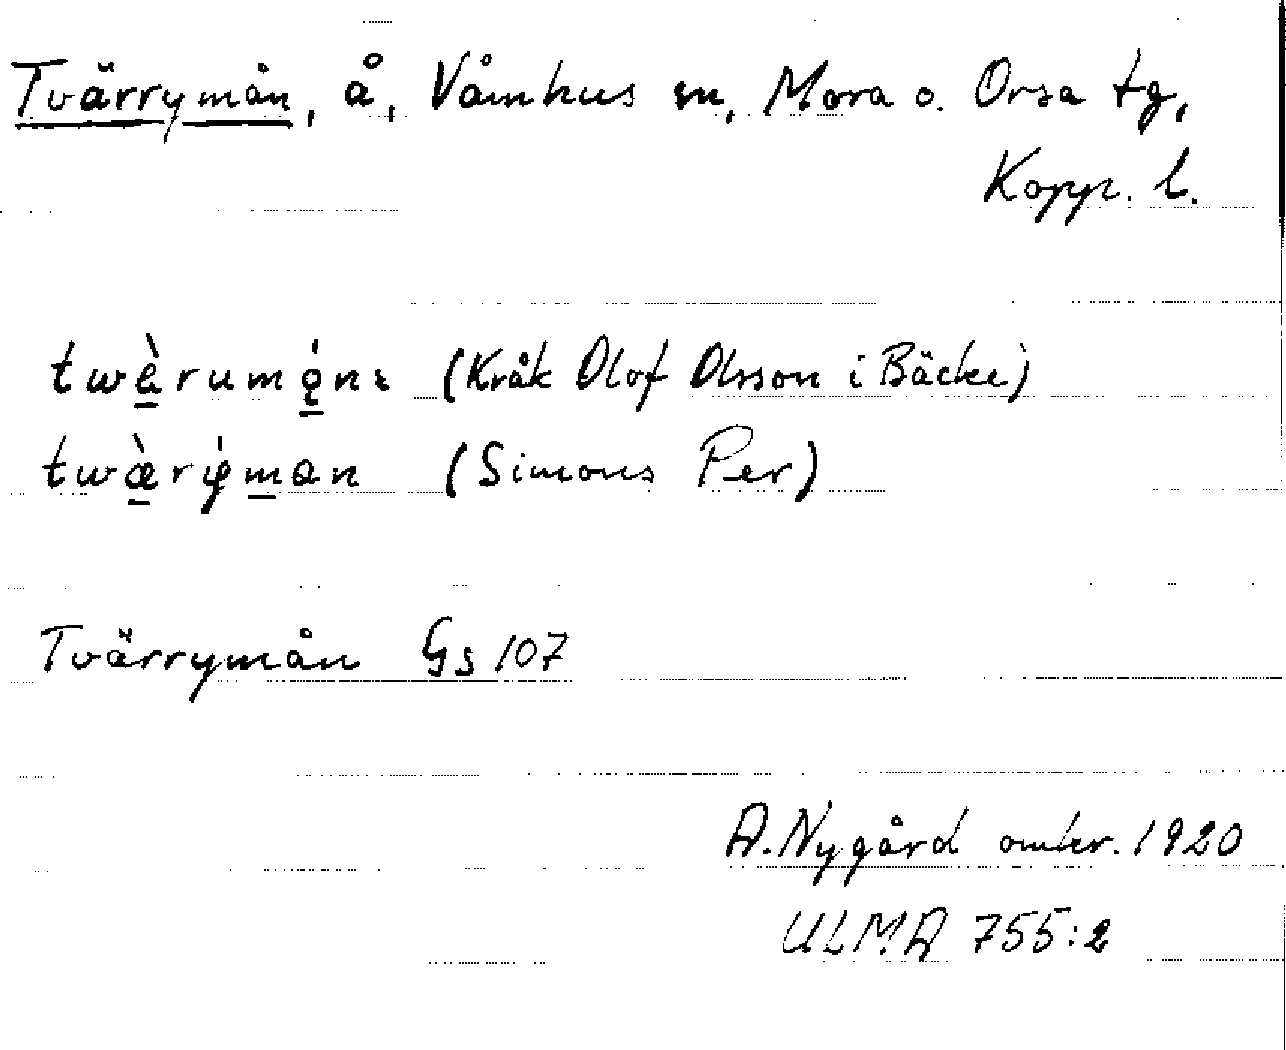 Tvärrymån, å, Våmhus sn, Mora o. Orsa tg,
Kopp. l.
twè̠rumǫ̠́nɛ (Kråk Olof Olsson i Bäcke)
twæ̠̀rý̨m̠an (Simons Per)
Tvärrymån Gs 107
A. Nygård omkr. 1920
ULMA 755:2